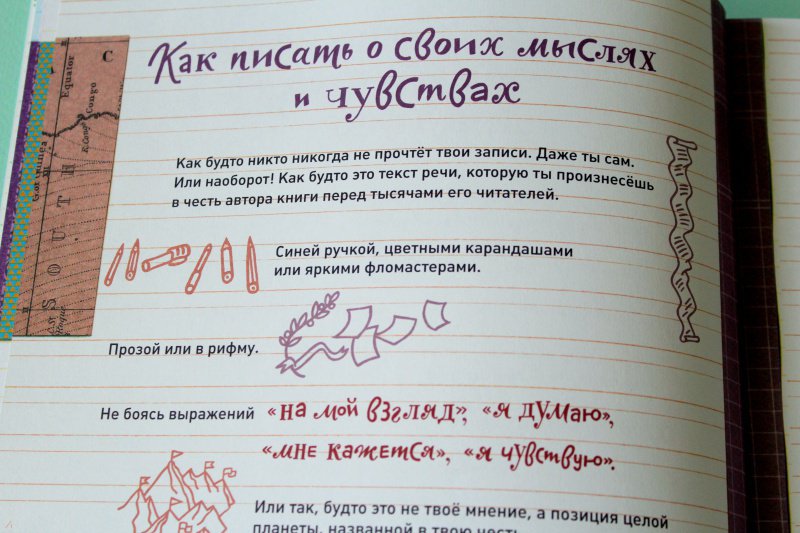 Как писать о своих мыслях
и чувствах
Как будто никто никогда не прочтёт твои записи. Даже ты сам.
Или наоборот! Как будто это текст речи, которую ты произнесёшь
в честь автора книги перед тысячами его читателей.
Синей ручкой, цветными карандашами
или яркими фломастерами.
Прозой или в рифму.
Не боясь выражений «на мой взгляд», «я думаю»,
«мне кажется», «я чувствую».
Или так, будто это не твоё мнение, а позиция целой
планеты, названной в твою честь
C
Equator
Congo
Guinea
SOUTH